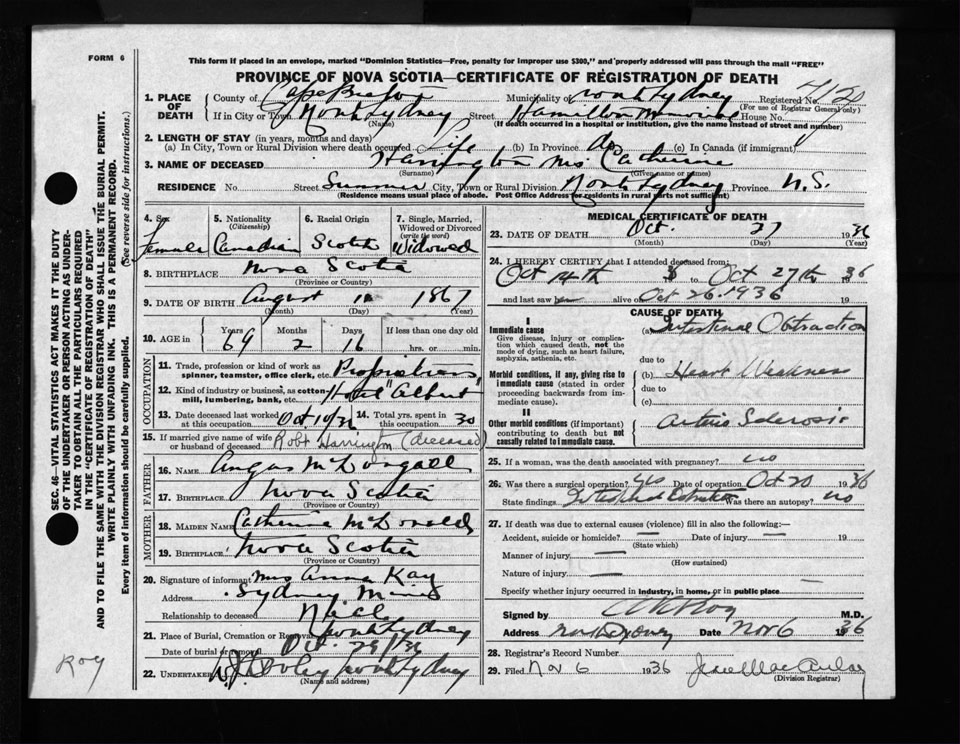 FORM 6
This form if placed in an envelope, marked "Dominion Statistics—Free, penalty for improper use $300," and properly addressed will pass through the mail "FREE"
PROVINCE OF NOVA SCOTIA—CERTIFICATE OF REGISTRATION OF DEATH
1. PLACE OF DEATH County of Cape Breton Municipality of North Sydney Registered No.
(For use of Registrar General only)
If in City or Town North Sydney Street Hamilton House No.
(Name) (If death occurred in a hospital or institution, give the name instead of street and number)
2. LENGTH OF STAY (in years, months and days)
(a) In City, Town or Rural Division where death occurred Life (b) In Province do (c) In Canada (if immigrant)
3. NAME OF DECEASED Harrington Mrs Catherine
(Surname) (Given name or names)
RESIDENCE No. Street Summer City, Town or Rural Division North Sydney Province N.S.
(Residence means usual place of abode. Post Office Address for residents in rural parts not sufficient)
4. Sex Female
5. Nationality (Citizenship) Canadian
6. Racial Origin Scotch
7. Single, Married, Widowed or Divorced (write the word) Widowed
8. BIRTHPLACE Nova Scotia
(Province or Country)
9. DATE OF BIRTH August 11 1867
(Month) (Day) (Year)
10. AGE in Years 69 Months 2 Days 16 If less than one day old hrs. or min.
OCCUPATION
11. Trade, profession or kind of work as spinner, teamster, office clerk, etc.
12. Kind of industry or business, as cotton mill, lumbering, bank, etc. Hotel "Albert"
13. Date deceased last worked at this occupation
14. Total yrs. spent in this occupation 30
15. If married give name of wife or husband of deceased Robt Harrington (deceased)
FATHER
16. NAME Angus McDougall
17. BIRTHPLACE Nova Scotia
(Province or Country)
MOTHER
18. MAIDEN NAME Catherine McDonald
19. BIRTHPLACE Nova Scotia
(Province or Country)
20. Signature of informant Mrs Anna Kay
Address Sydney Mines
Relationship to deceased Niece
21. Place of Burial, Cremation or Removal North Sydney
Date of burial or removal Oct. 29/36
22. UNDERTAKER North Sydney
(Name and address)
MEDICAL CERTIFICATE OF DEATH
23. DATE OF DEATH Oct. 27 1936
(Month) (Day) (Year)
24. I HEREBY CERTIFY that I attended deceased from:
Oct 14th 36 to Oct 27th 36
and last saw her alive on Oct 26. 1936 19
CAUSE OF DEATH
I
Immediate cause
Give disease, injury or complication which caused death, not the mode of dying, such as heart failure, asphyxia, asthenia, etc.
(a) Intestinal Obstruction
due to
Morbid conditions, if any, giving rise to immediate cause (stated in order proceeding backwards from immediate cause).
(b) Heart Weakness
due to
(c)
II
Other morbid conditions (if important) contributing to death but not causally related to immediate cause.
Arterio Sclerosis
25. If a woman, was the death associated with pregnancy? no
26. Was there a surgical operation? yes Date of operation Oct 20 1936
State findings Intestinal Obstruction Was there an autopsy? no
27. If death was due to external causes (violence) fill in also the following:—
Accident, suicide or homicide? — Date of injury — 19
(State which)
Manner of injury —
(How sustained)
Nature of injury —
Specify whether injury occurred in industry, in home, or in public place —
Signed by M.D.
Address North Sydney Date Nov 6 1936
28. Registrar's Record Number
29. Filed Nov 6 1936
(Division Registrar)
SEC. 46—VITAL STATISTICS ACT MAKES IT THE DUTY
OF THE UNDERTAKER OR PERSON ACTING AS UNDER-
TAKER TO OBTAIN ALL THE PARTICULARS REQUIRED
IN THE "CERTIFICATE OF REGISTRATION OF DEATH"
AND TO FILE THE SAME WITH THE DIVISION REGISTRAR WHO SHALL ISSUE THE BURIAL PERMIT.
WRITE PLAINLY WITH UNFADING INK. THIS IS A PERMANENT RECORD.
Every item of information should be carefully supplied. (See reverse side for instructions.)
Roy